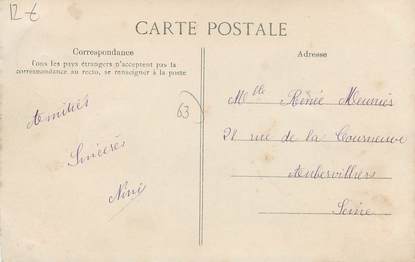 12 €
CARTE POSTALE
Correspondance
Tous les pays étrangers n'acceptent pas la
correspondance au recto, se renseigner à la poste
Adresse
63
Amitiés
Sincères
Nini
Mlle Rénée Meunier
21 rue de la Courneuve
Aubervilliers
Seine